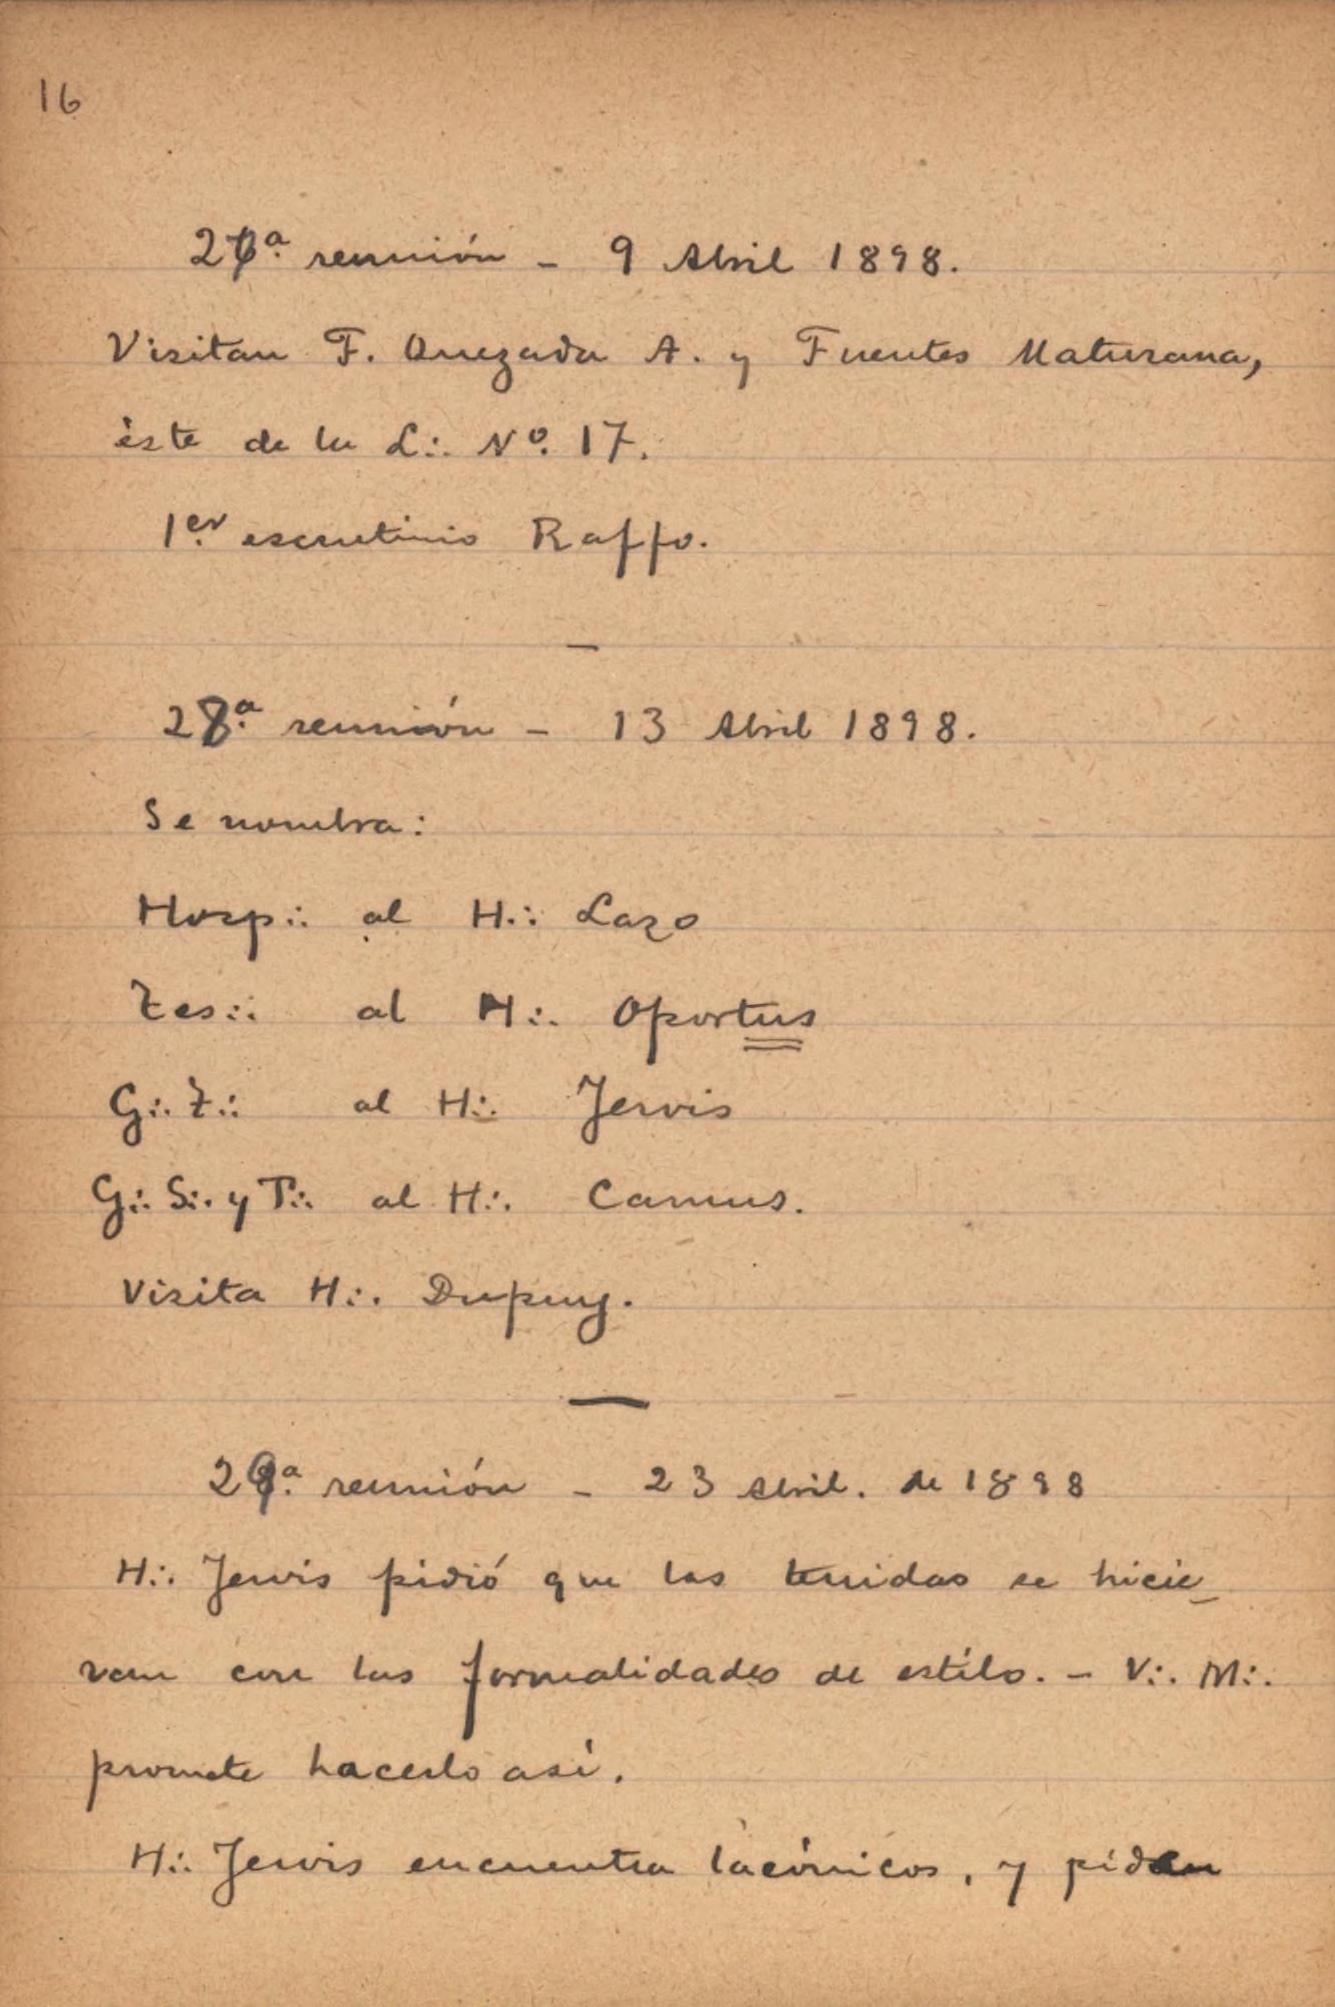 16
27ª reunión - 9 Abril 1898.
Visitan F. Quezada A. y Fuentes Maturana,
éste de la L∴ Nº. 17.
1er escrutinio Raffo.
—
28ª reunión - 13 Abril 1898.
Se nombra:
Hosp∴ al H∴ Lazo
Tes∴ al H∴ Oportus
G∴ T∴ al H∴ Jervis
G∴ S∴ y T∴ al H∴ Camus.
Visita H∴ Dupuy.
—
29ª reunión - 23 Abril. de 1898
H∴ Jervis pidió que las tenidas se hicie-
ran con las formalidades de estilo. - V∴ M∴
promete hacerlo así.
H∴ Jervis encuentra lacónicos, y piden